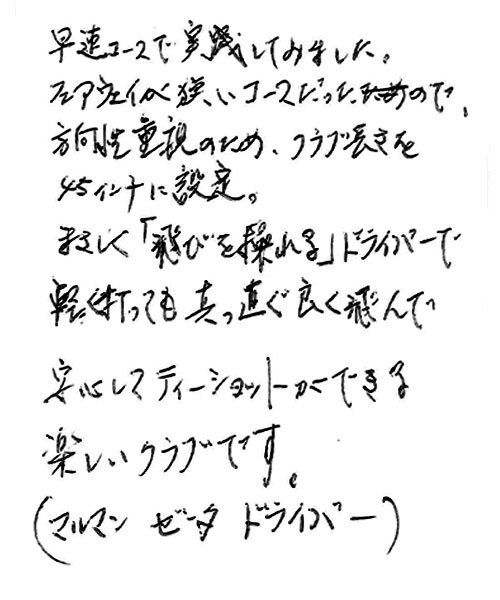 早速コースで実践してみました。
フェアウェイが狭いコースだったので、
方向性重視のため、クラブ長さを
45インチに設定。
まさしく「飛びを操れる」ドライバーで
軽く打っても真っ直ぐ良く飛んで
安心してティーショットができる
楽しいクラブです。
(マルマン ゼータ ドライバー)